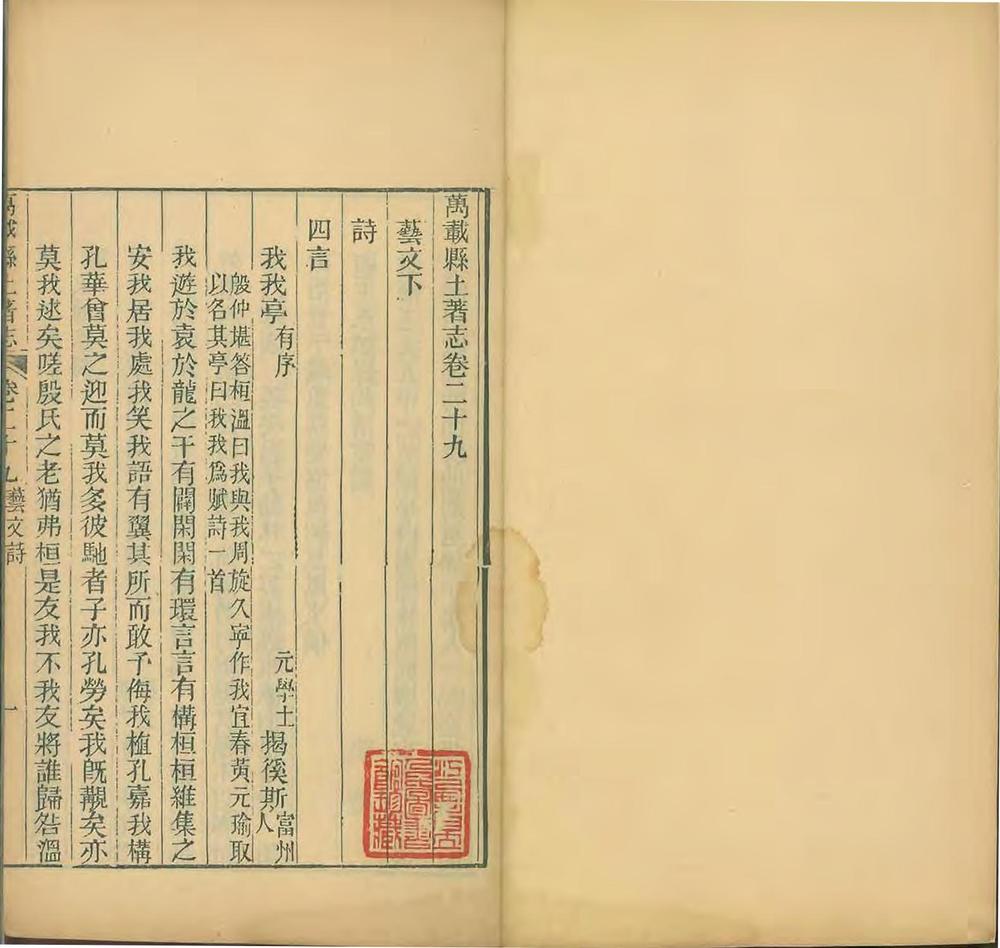 萬載縣土著志卷二十九
藝文下
詩
四言
我我亭有序 元學士揭徯斯富州人
殷仲堪答桓溫曰我與我周旋久寧作我宜春黃元瑜取
以名其亭曰我我爲賦詩一首
我遊於袁於龍之干有閈閑閑有環言言有構桓桓維集之
安我居我處我笑我語有翼其所而敢予侮我植孔嘉我構
孔華曾莫之迎而莫我多彼馳者子亦孔勞矣我旣覯矣亦
莫我逑矣嗟殷氏之老猶弗桓是友我不我友將誰歸咎溫
萬載縣土著志 卷二十九藝文詩 一